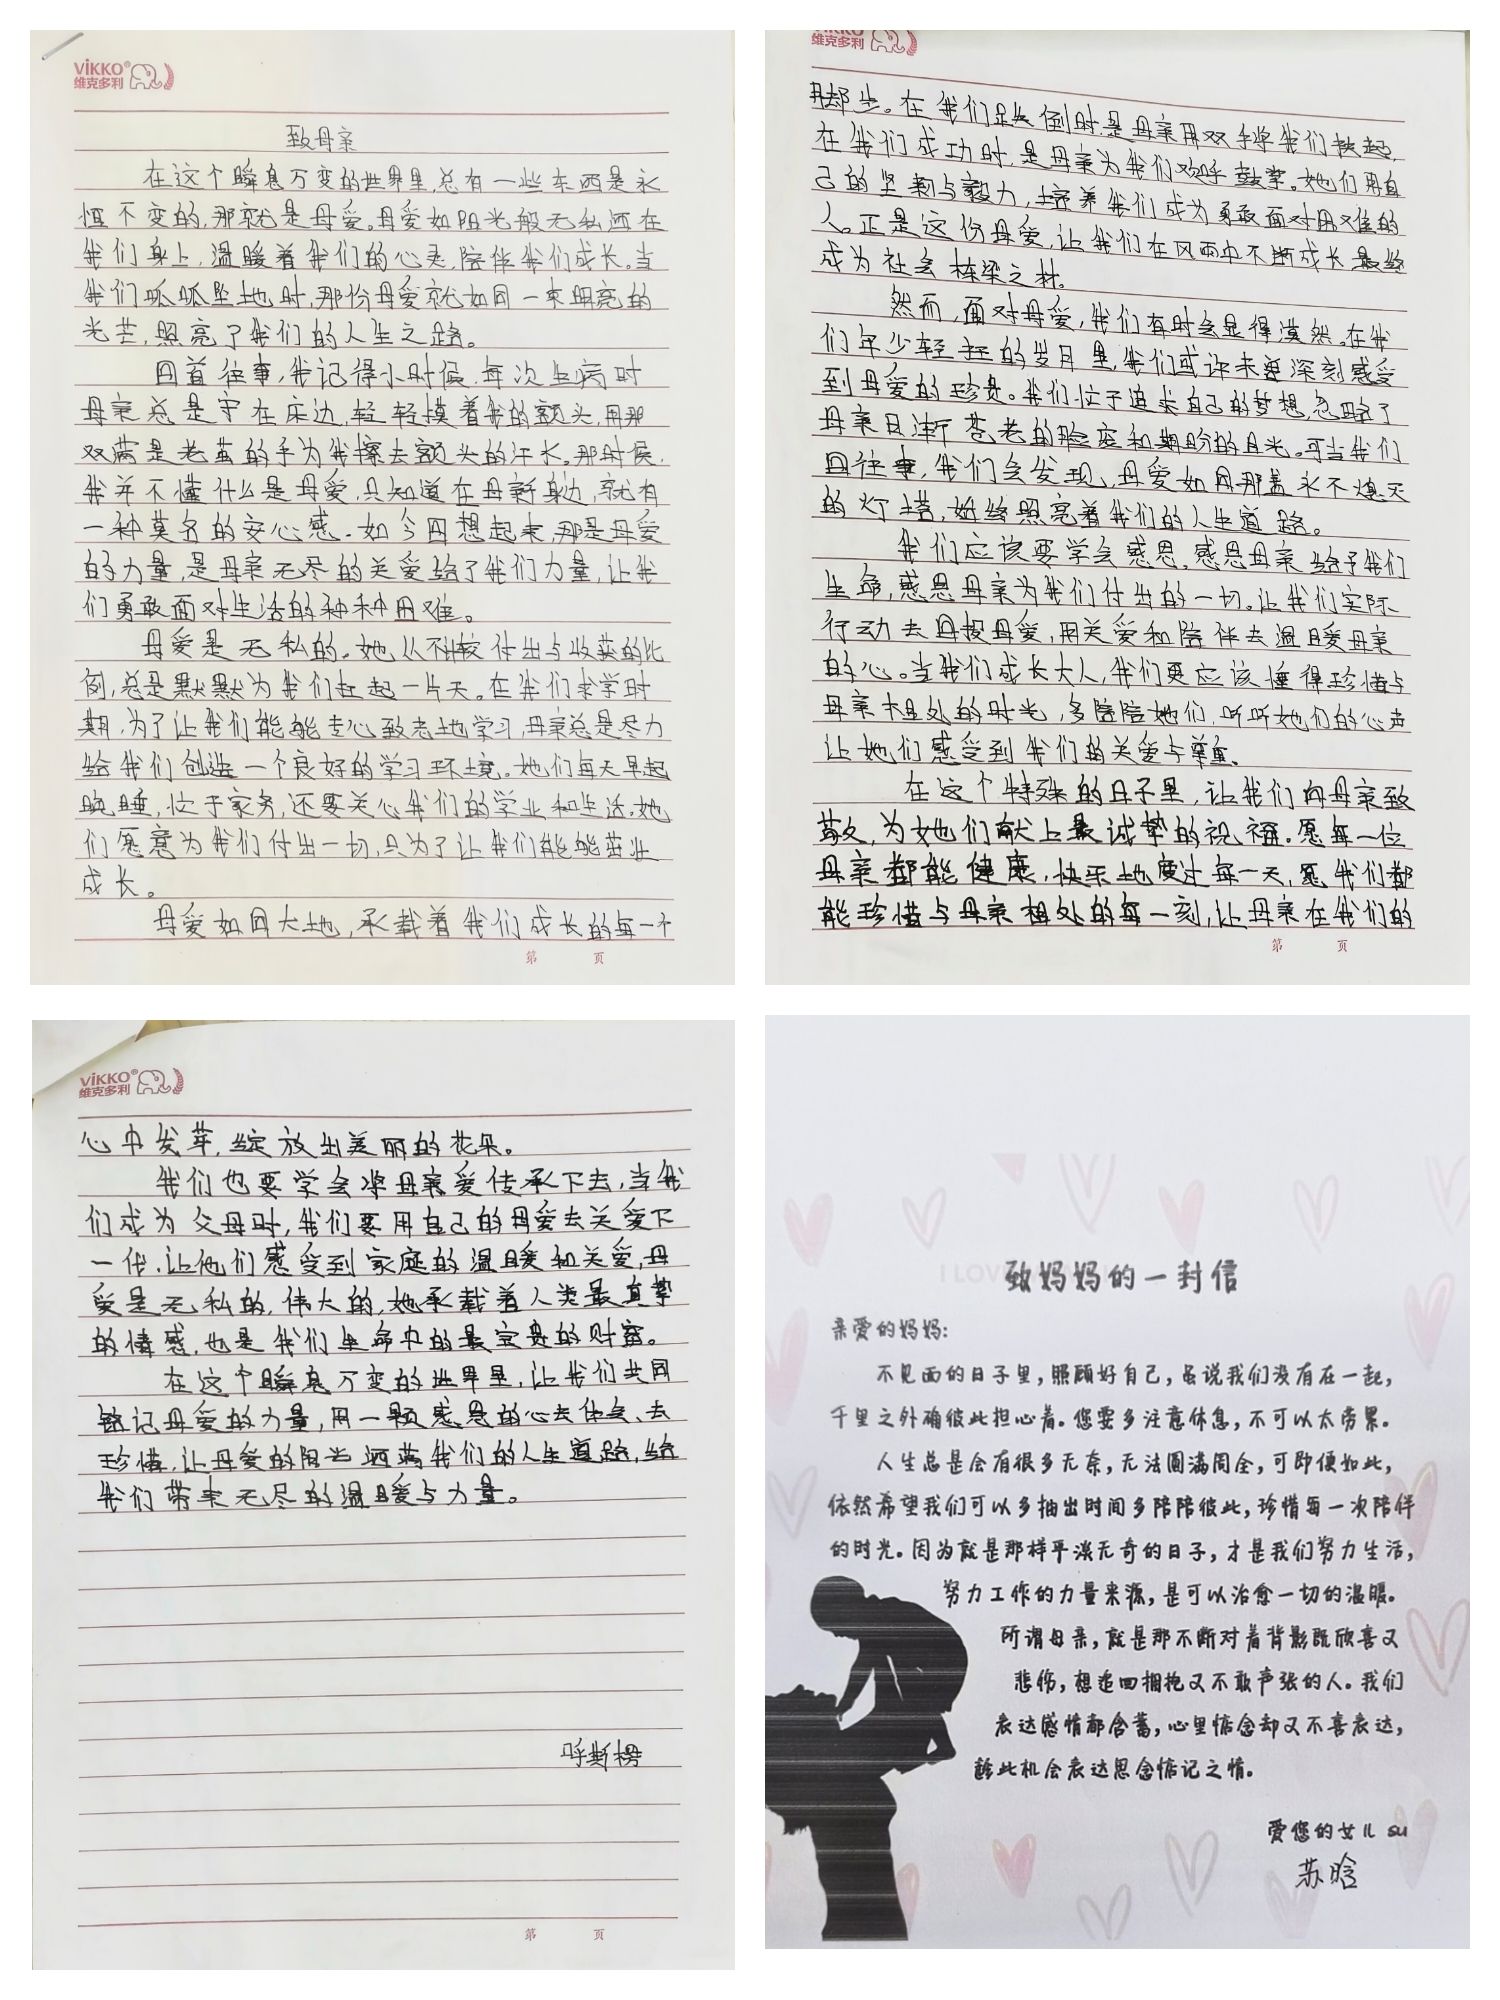 ViKKO®
维克多利
致母亲
在这个瞬息万变的世界里,总有一些东西是永
恒不变的,那就是母爱。母爱如阳光般无私洒在
我们身上,温暖着我们的心灵,陪伴我们成长。当
我们呱呱坠地时,那份母爱就如同一束明亮的
光芒,照亮了我们的人生之路。
回首往事,我记得小时候,每次生病时
母亲总是守在床边,轻轻摸着我的额头,用那
双满是老茧的手为我擦去额头的汗水。那时候,
我并不懂什么是母爱,只知道在母亲身边,就有
一种莫名的安心感。如今回想起来,那是母爱
的力量,是母亲无尽的关爱给了我们力量,让我
们勇敢面对生活的种种困难。
母爱是无私的。她从不计较付出与收获的比
例,总是默默为我们扛起一片天。在我们求学时
期,为了让我们能能专心致志地学习,母亲总是尽力
给我们创造一个良好的学习环境。她们每天早起
晚睡,忙于家务,还要关心我们的学业和生活,她
们愿意为我们付出一切,只为了让我们能能茁壮
成长。
母爱如同大地,承载着我们成长的每一个
第 页
维克多利
脚步。在我们跌倒时,是母亲用双手将我们扶起,
在我们成功时,是母亲为我们欢呼鼓掌。她们用自
己的坚韧与毅力,培养我们成为勇敢面对困难的
人。正是这份母爱,让我们在风雨中不断成长,最终
成为社会栋梁之材。
然而,面对母爱,我们有时会显得漠然。在我
们年少轻狂的岁月里,我们或许未曾深刻感受
到母爱的珍贵。我们忙于追求自己的梦想,忽略了
母亲日渐苍老的脸庞和期盼的目光。可当我们
回往事,我们会发现,母爱如同那盏永不熄灭
的灯塔,始终照亮着我们的人生道路。
我们应该要学会感恩,感恩母亲给予我们
生命,感恩母亲为我们付出的一切。让我们实际
行动去回报母爱,用关爱和陪伴去温暖母亲
的心。当我们成长大人,我们更应该懂得珍惜与
母亲相处的时光,多陪陪她们,听听她们的心声
让她们感受到我们的关爱与尊重。
在这个特殊的日子里,让我们向母亲致
敬,为她们献上最诚挚的祝福。愿每一位
母亲都能健康,快乐地度过每一天,愿我们都
能珍惜与母亲相处的每一刻,让母亲在我们的
第 页
ViKKO®
维克多利
心中发芽,绽放出美丽的花朵。
我们也要学会将母亲爱传承下去,当我
们成为父母时,我们要用自己的母爱去关爱下
一代,让他们感受到家庭的温暖和关爱,母
爱是无私的,伟大的,她承载着人类最真挚
的情感,也是我们生命中的最宝贵的财富。
在这个瞬息万变的世界里,让我们共同
铭记母爱的力量,用一颗感恩的心去体会、去
珍惜,让母爱的阳光洒满我们的人生道路,给
我们带来无尽的温暖与力量。
呼斯楞
第 页
致妈妈的一封信
亲爱的妈妈:
不见面的日子里,照顾好自己,虽说我们没有在一起,
千里之外确彼此担心着。您要多注意休息,不可以太劳累。
人生总是会有很多无奈,无法圆满周全,可即便如此,
依然希望我们可以多抽出时间多陪陪彼此,珍惜每一次陪伴
的时光。因为就是那样平淡无奇的日子,才是我们努力生活,
努力工作的力量来源,是可以治愈一切的温暖。
所谓母亲,就是那不断对着背影既欣喜又
悲伤,想追回拥抱又不敢声张的人。我们
表达感情都含蓄,心里惦念却又不喜表达,
趁此机会表达思念惦记之情。
爱您的女儿 su
苏晗